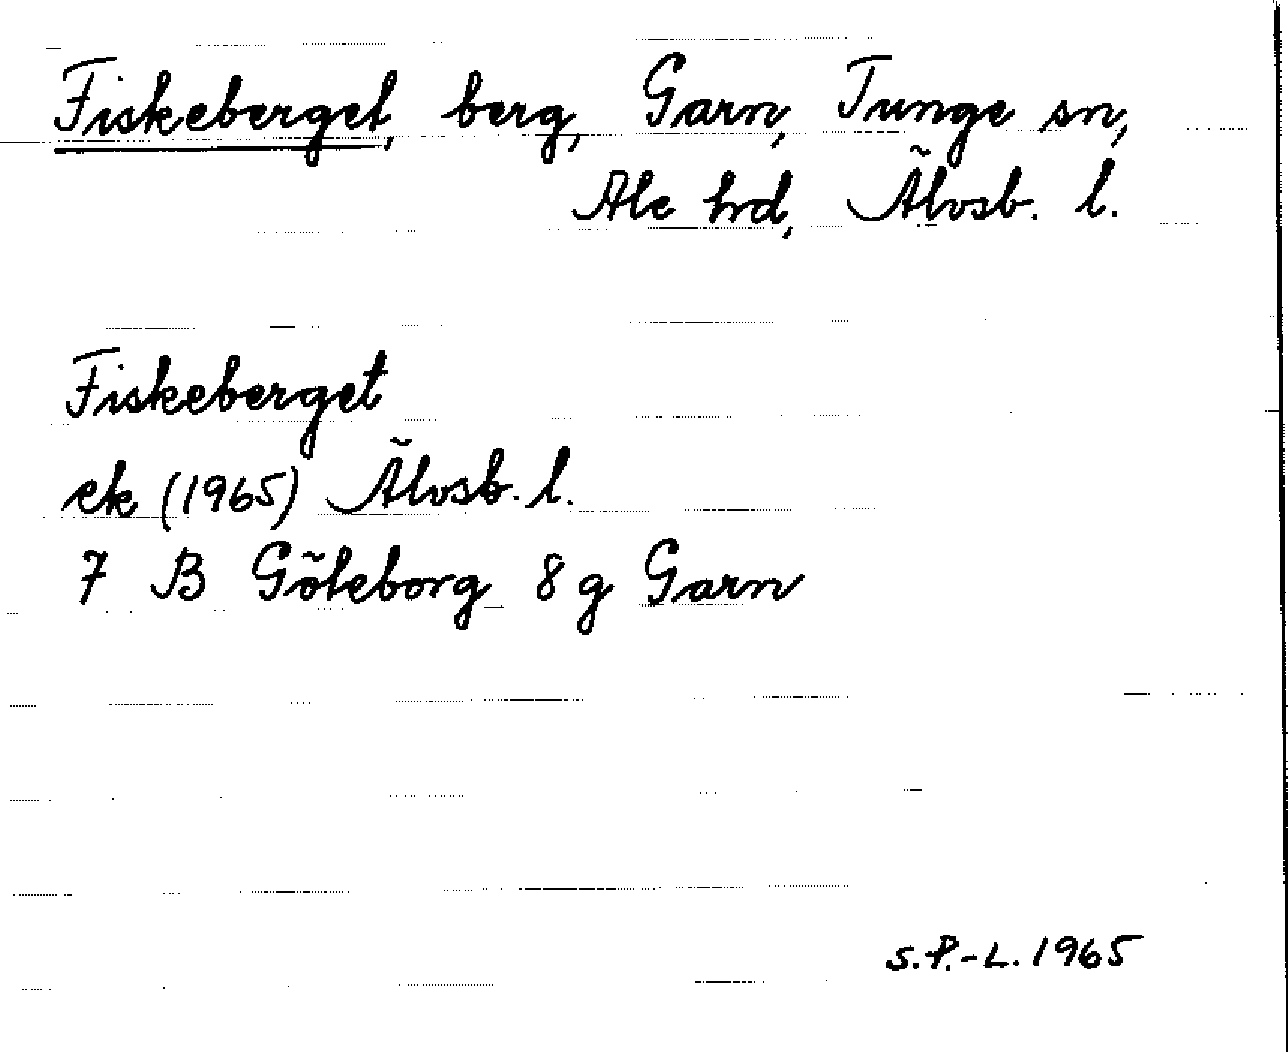 Fiskeberget, berg, Garn, Tunge sn,
Ale hrd, Älvsb. l.
Fiskeberget
ek (1965) Älvsb. l.
7 B Göteborg 8 g Garn
S.P.-L. 1965